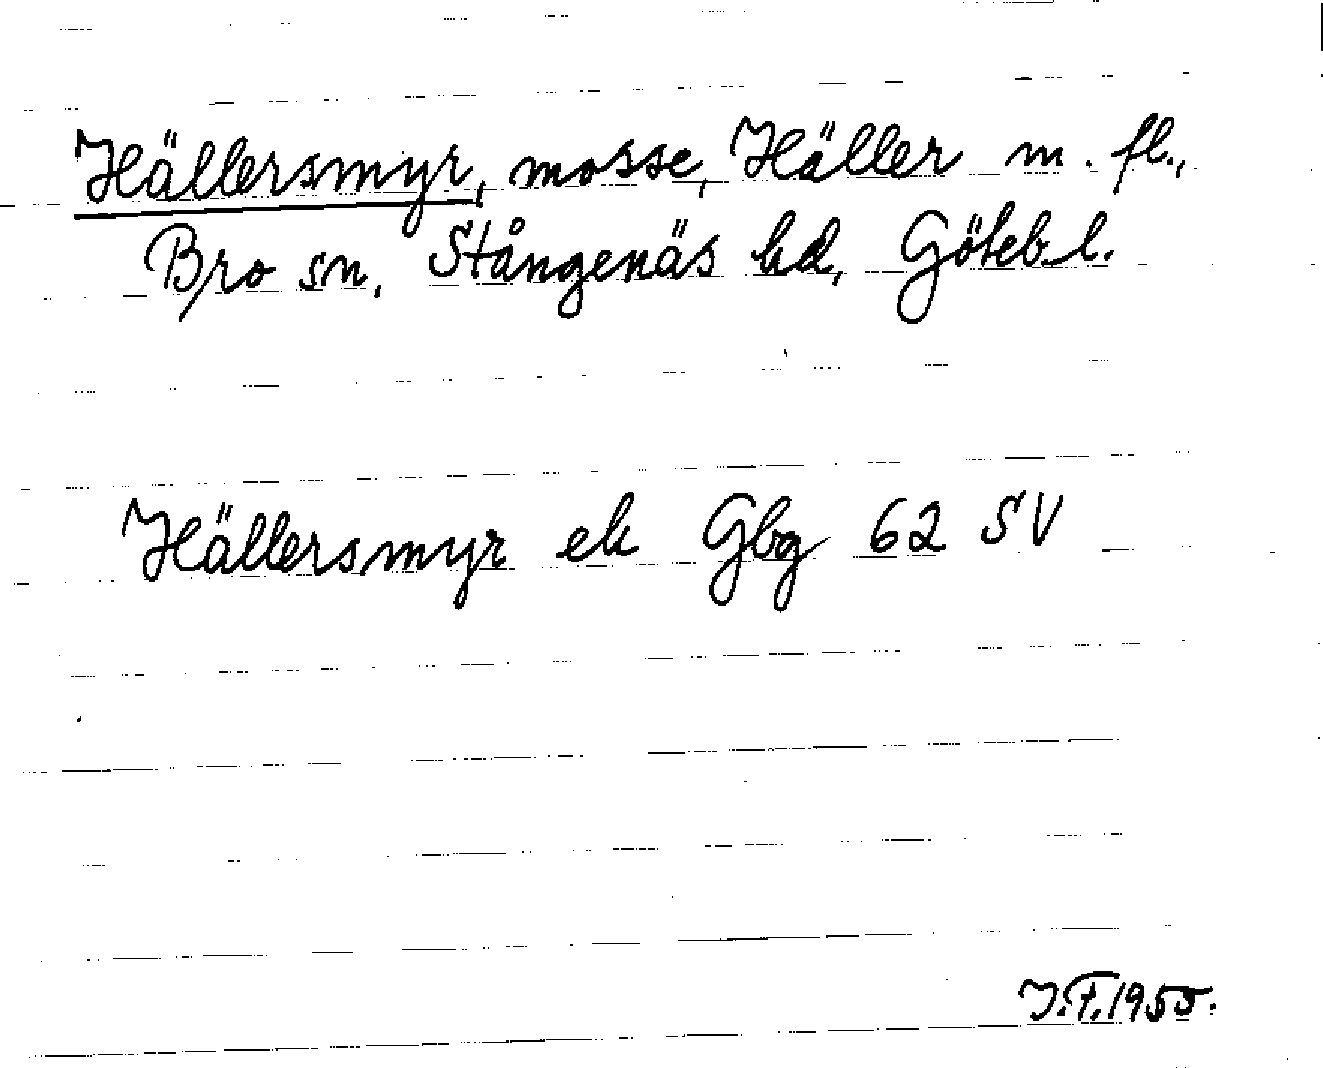 Hällersmyr, mosse, Häller m. fl.,
Bro sn, Stångenäs hd, Göteb. l.
Hällersmyr ek Gbg 62 SV
J.F. 1955.